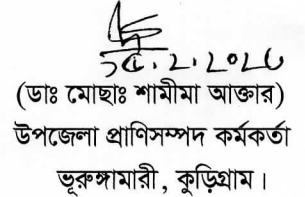 (ডাঃ মোছাঃ শামীমা আক্তার)
উপজেলা প্রাণিসম্পদ কর্মকর্তা
ভূরুঙ্গামারী, কুড়িগ্রাম।